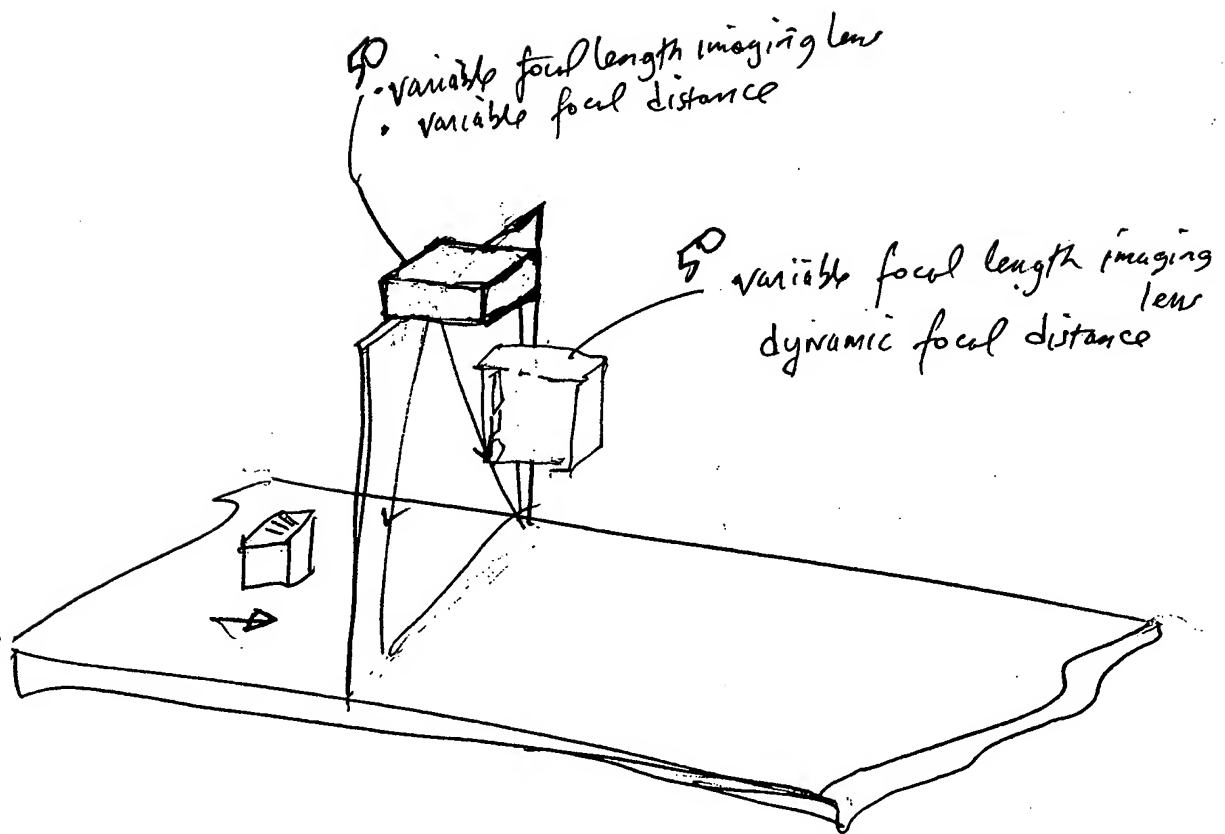 50
• variable focal length imaging lens
• variable focal distance
50
variable focal length imaging
lens
dynamic focal distance